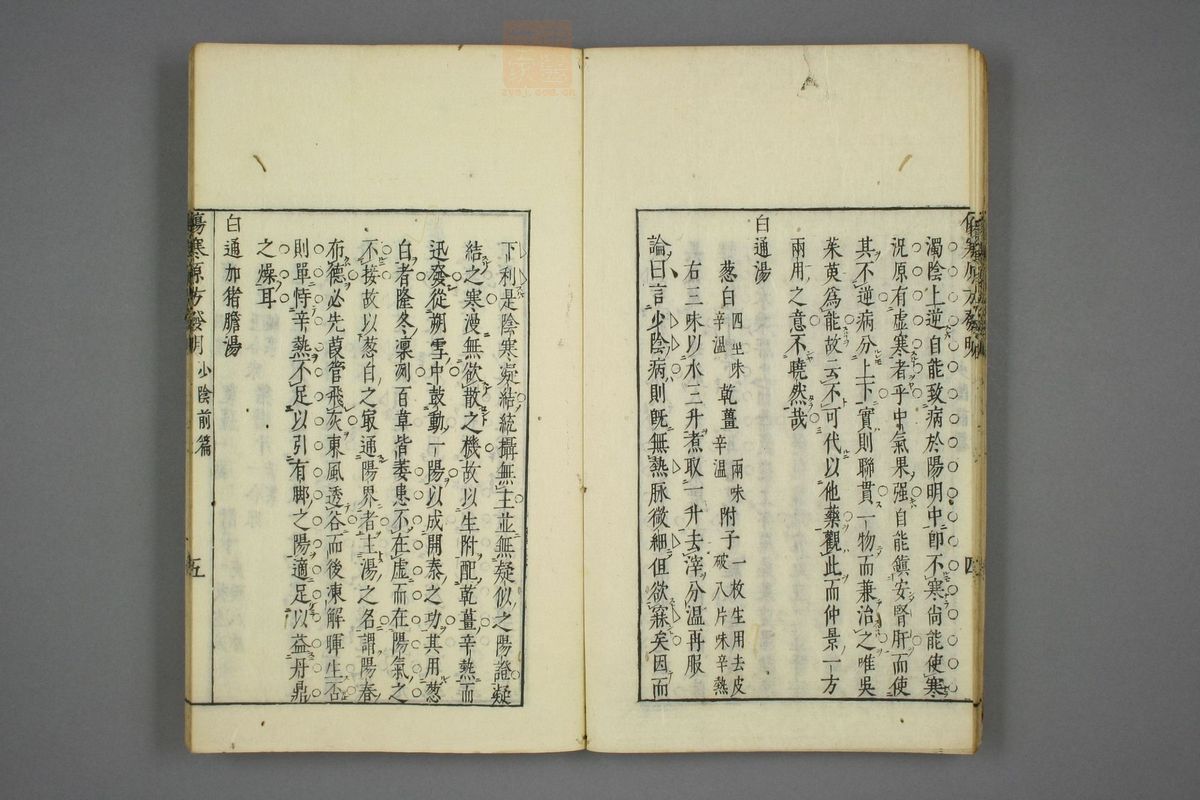 濁陰上逆自能致病於陽明中即不寒尚能使寒
況原有虛寒者乎中氣果强自能鎮安腎肝而使
其不逆病分上下實則聯貫一物而兼治之唯吳
茱萸爲能故云不可代以他藥觀此而仲景一方
兩用之意不曉然哉
白通湯
葱白四莖味辛溫 乾薑兩味辛溫 附子一枚生用去皮破八片味辛熱
右三味以水三升煮取一升去滓分温再服
論曰言少陰病則旣無熱脉微細但欲寐矣因而
四
下利是陰寒凝結統攝無主並無疑似之陽證凝
結之寒漫無欲散之機故以生附配乾薑辛熱而
迅發從朔雪中鼓動一陽以成開泰之功其用葱
白者隆冬凜冽百草皆萎患不在虛而在陽氣之
不接故以葱白之㝡通陽界者主湯之名謂陽春
布德必先葭管飛灰東風透谷而後凍解暉生否
則單恃辛熱不足以引有脚之陽適足以益丹鼎
之燥耳
白通加猪膽湯
傷寒原方發明 少陰前篇 五
zyyj.com.cn